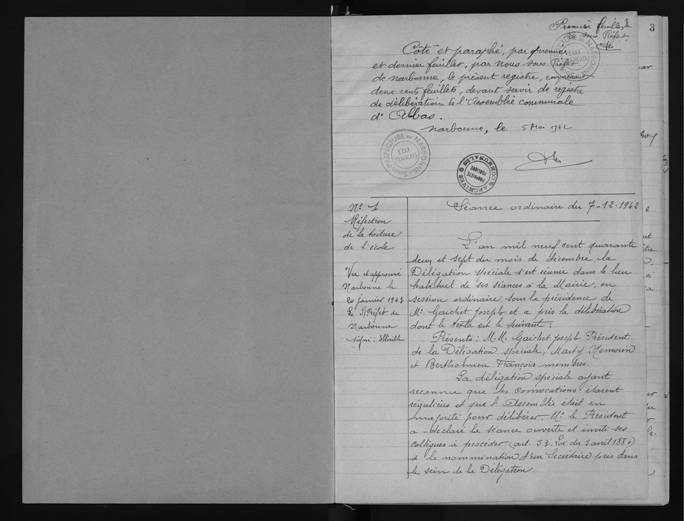 Premier feuillet
le Sous Préfet
3
Coté et paraphé, par premier
et dernier feuillet, par nous Sous Préfet
de Narbonne, le présent registre, comprenant
deux cents feuillets, devant servir de registre
de délibération de l'Assemblée communale
d'Albas.
Narbonne, le 5 Mai 1942
N° 1
Réfection
de la toiture
de l'école
Vu et approuvé
Narbonne le
20 janvier 1943
Le S/Préfet de
Narbonne
signé :
Séance ordinaire du 7-12-1942
L'an mil neuf cent quarante
deux et sept du mois de décembre, la
Délégation spéciale s'est réunie dans le lieu
habituel de ses séances à la Mairie, en
session ordinaire sous la présidence de
Mr Gaichet Joseph et a pris la délibération
dont le texte est le suivant :
Présents : M.M. Gaichet Joseph Président
de la Délégation spéciale, Marty
et Berthomieu François membres.
La délégation spéciale ayant
reconnu que les convocations étaient
régulières et que l'Assemblée était en
majorité pour délibérer. Mr le Président
a déclaré la séance ouverte et invité ses
collègues à procéder (art. 53 Loi du 5 avril 1884)
à la nommination d'un Secrétaire pris dans
le sein de la Délégation.